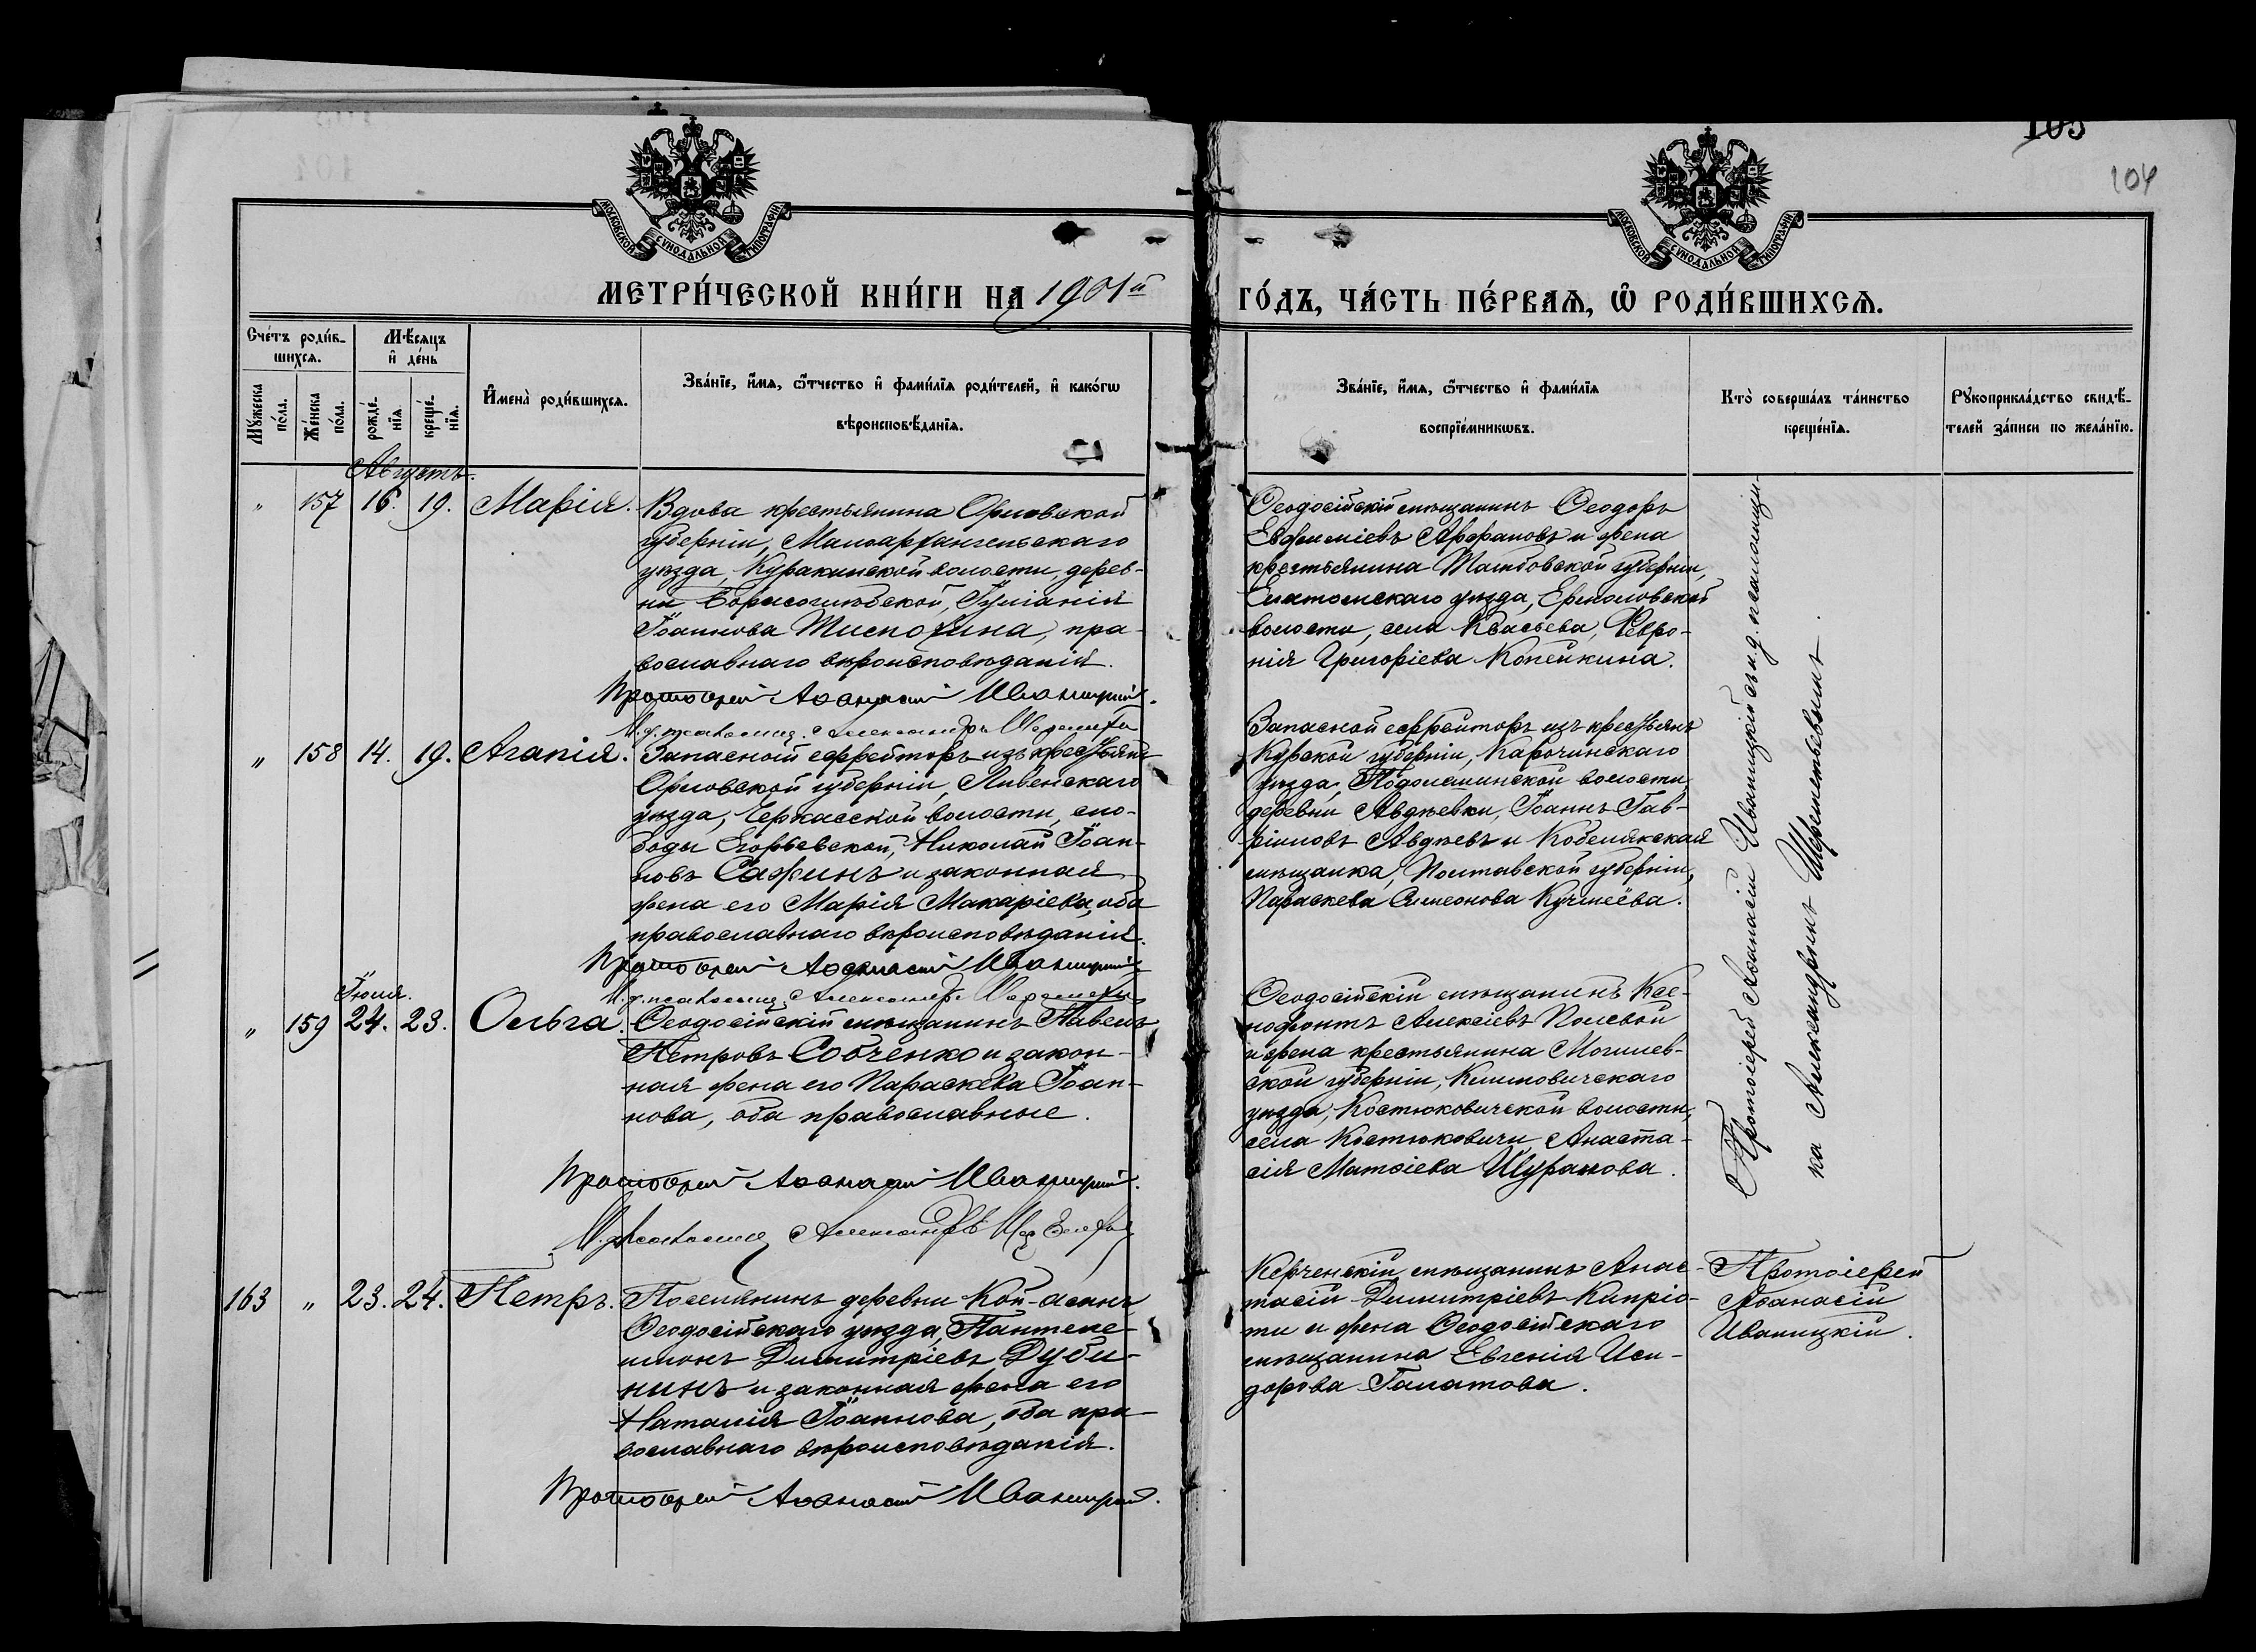 105
104
МОСКОВСКОЙ СѴНОДАЛЬНОЙ ТИПОГРАФІИ
МОСКОВСКОЙ СѴНОДАЛЬНОЙ ТИПОГРАФІИ
МЕТРИ́ЧЕСКОЙ КНИ́ГИ НА 1901й
ГО́ДЪ, ЧА́СТЬ ПЕ́РВАѦ, Ѡ҆ РОДИ́ВШИХСѦ.
Сче́тъ роди́в-
шихсѧ.
Мꙋ́жеска по́ла.
Же́нска по́ла.
Мѣ́сѧцъ
и҆ де́нь
рожде́-
нїѧ.
креще́-
нїѧ.
И҆мена̀ роди́вшихсѧ.
Зва́нїе, и҆́мѧ, ѻ҆́тчество и҆ фами́лїѧ роди́телей, и҆ како́гѡ
вѣроисповѣ́данїѧ.
Зва́нїе, и҆́мѧ, ѻ҆́тчество и҆ фами́лїѧ
воспрїе́мникѡвъ.
Кто̀ соверша́лъ та́инство
креще́нїѧ.
Рꙋкоприкла́дство свидѣ́-
телей за́писи по жела́нїю.
Августъ.
" 157 16. 19. Марія.
Вдова крестьянина Орловской
губерніи, Малоархангельскаго
уѣзда, Куракинской волости, дерев-
ни Борисоглѣбской, Іуліанія
Іоаннова Тиснохина, пра-
вославнаго вѣроисповѣданія.
Протоіерей Аѳанасій Иваницкій.
И. д. псаломщ. Александръ
Ѳеодосійскій мѣщанинъ Ѳеодоръ
Евфиміевъ Арфановъ и жена
крестьянина Тамбовской губерніи,
Елатомскаго уѣзда, Ермоловской
волости, села Квасьева, Февро-
нія Григоріева Копейкина.
" 158 14. 19. Агапія.
Запасной ефрейторъ изъ крестьянъ
Орловской губерніи, Ливенскаго
уѣзда, Черкасской волости, сло-
боды Егорьевской, Николай Іоан-
новъ Сафинъ и законная
жена его Марія Макаріева, оба
православнаго вѣроисповѣданія.
Протоіерей Аѳанасій Иваницкій.
И. д. псаломщ. Александръ
Запасной ефрейторъ изъ крестьянъ
Курской губерніи, Карочинскаго
уѣзда, волости,
деревни Авдѣевки, Іоаннъ Гав-
ріиловъ Авдѣевъ и Кобелякская
мѣщанка, Полтавской губерніи,
Параскева Симеонова
Іюля.
" 159 24. 23. Ольга.
Ѳеодосійскій мѣщанинъ Павелъ
Петровъ Собченко и закон-
ная жена его Параскева Іоан-
нова, оба православные.
Протоіерей Аѳанасій Иваницкій.
И. д. псаломщ. Александръ
Ѳеодосійскій мѣщанинъ Ксе-
нофонтъ Алексіевъ Полевой
и жена крестьянина Могилев-
ской губерніи, Климовичскаго
уѣзда, Костюковичской волости,
села Костюковичи, Анаста-
сія Матѳіева Шуранова.
Протоіерей Аѳанасій Иваницкій съ и. д. псаломщи-
ка Александромъ Шереметьевымъ.
163 " 23. 24. Петръ.
Поселянинъ деревни Кой-асанъ
Ѳеодосійскаго уѣзда, Пантеле-
имонъ Димитріевъ Дуби-
нинъ и законная жена его
Наталія Іоаннова, оба пра-
вославнаго вѣроисповѣданія.
Протоіерей Аѳанасій Иваницкій.
Керченскій мѣщанинъ Анас-
тасій Димитріевъ Капріо-
ти и жена Ѳеодосійскаго
мѣщанина Евгенія Иси-
дорова Галатова.
Протоіерей
Аѳанасій
Иваницкій.